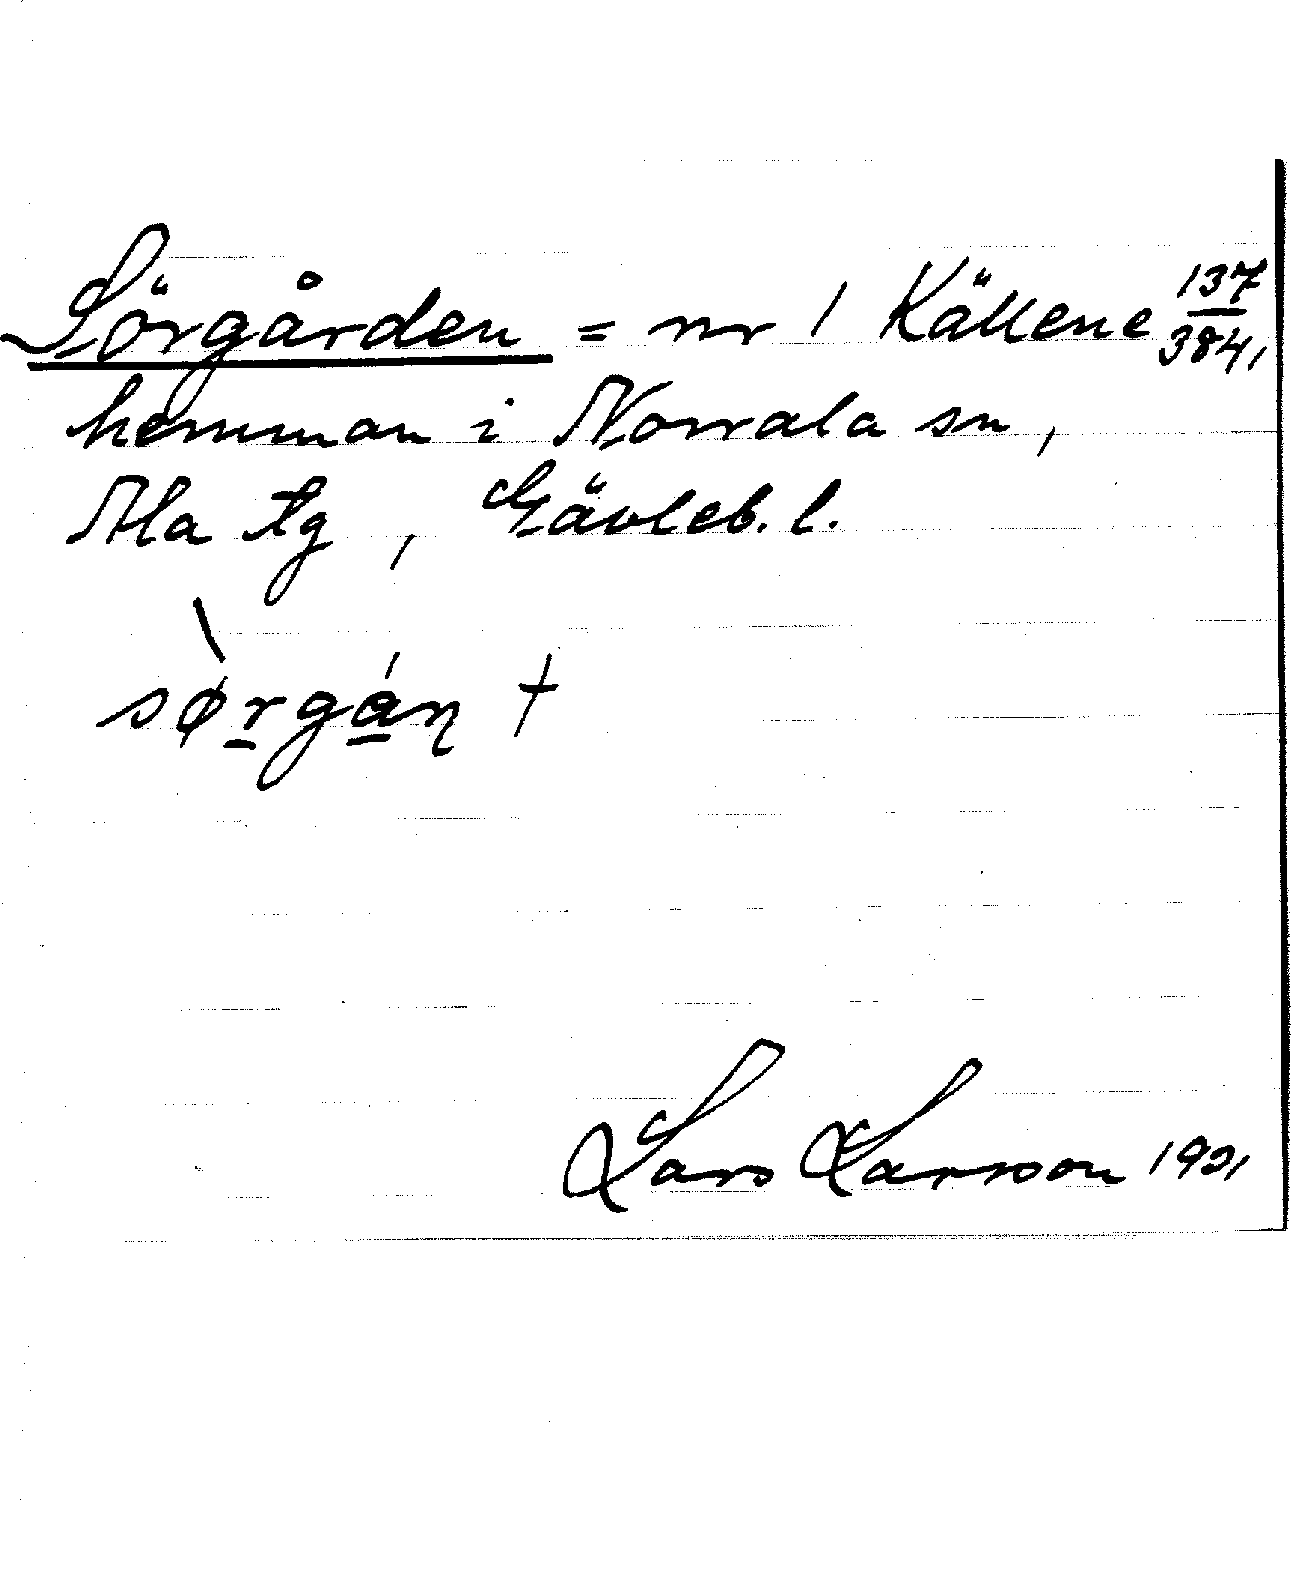 Sörgården = nr 1 Källene 137/384,
hemman i Norrala sn,
Ala tg, Gävleb. l.
sø̀rgáṇ +
Lars Larsson 1921